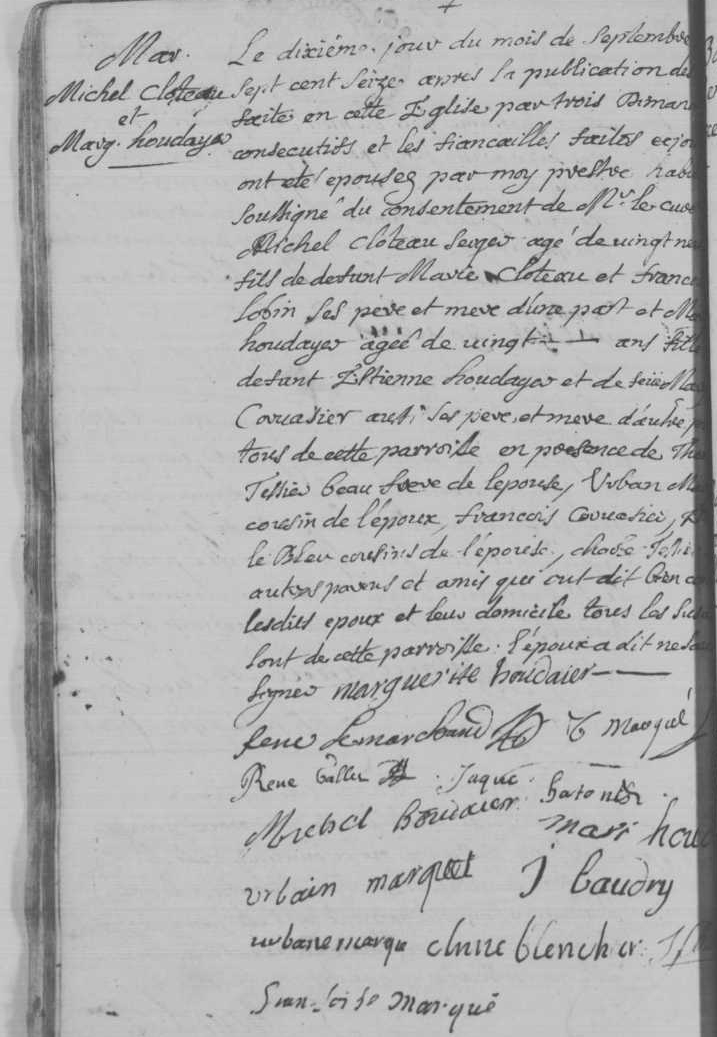 Mar.
Michel Cloteau
et
Marg. houdayer
Le dixiéme jour du mois de Septembre
sept cent seize apres la publication des
faite en cette Eglise par trois Diman
consecutifs et les fiancailles faites
ont eté epousez par moy prestre habi
soussigné du consentement de Mr. le curé
Michel Cloteau serger agé de vingt ne
fils de defunt Marie Cloteau et france
lobin ses pere et mere d'une part et Ma
houdayer ageé de vingt ans fille
defunt Estienne houdayer et de Ma
Corvasier aussi ses pere et mere d'autre p
tous de cette parroisse en presence de Th
Tessier beau frere de lepouse, Urban Ma
cousin de l'époux, francois Corvasier,
le Bleu cousins de l'épouse,
autres parens et amis qui ont dit bien co
lesdits epoux et leur domicile tous les sus
sont de cette parroisse. l'époux a dit ne sa
signer marguerite houdaier
rene Lemarchand Marqué
René Gallu Jaque
Michel houdaier
mari hou
urbain marquet J baudry
urbane marque anne blencher
Fransoise Marqué